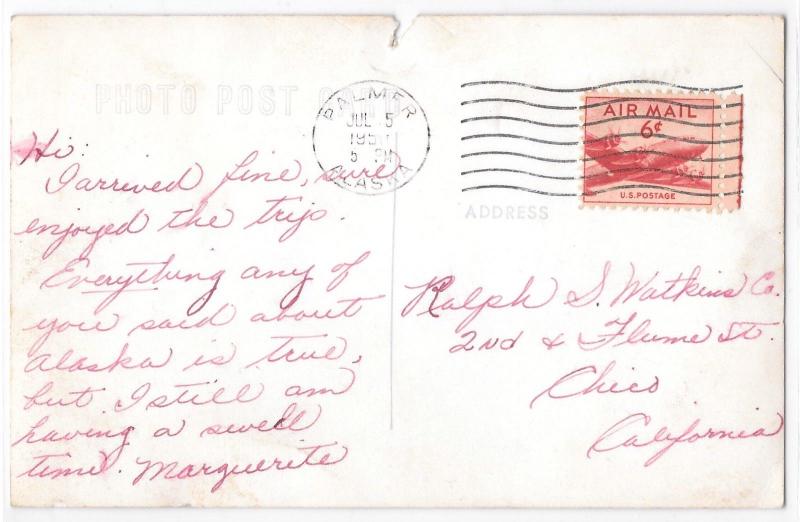 PHOTO POST CARD
PALMER
JUL 5
195
5 PM
ALASKA
AIR MAIL
6¢
U.S. POSTAGE
ADDRESS
Hi:
I arrived fine, sure
enjoyed the trip.
Everything any of
you said about
Alaska is true,
but I still am
having a swell
time. Marguerite
Ralph S. Watkins Co.
2nd & Flume St.
Chico
California